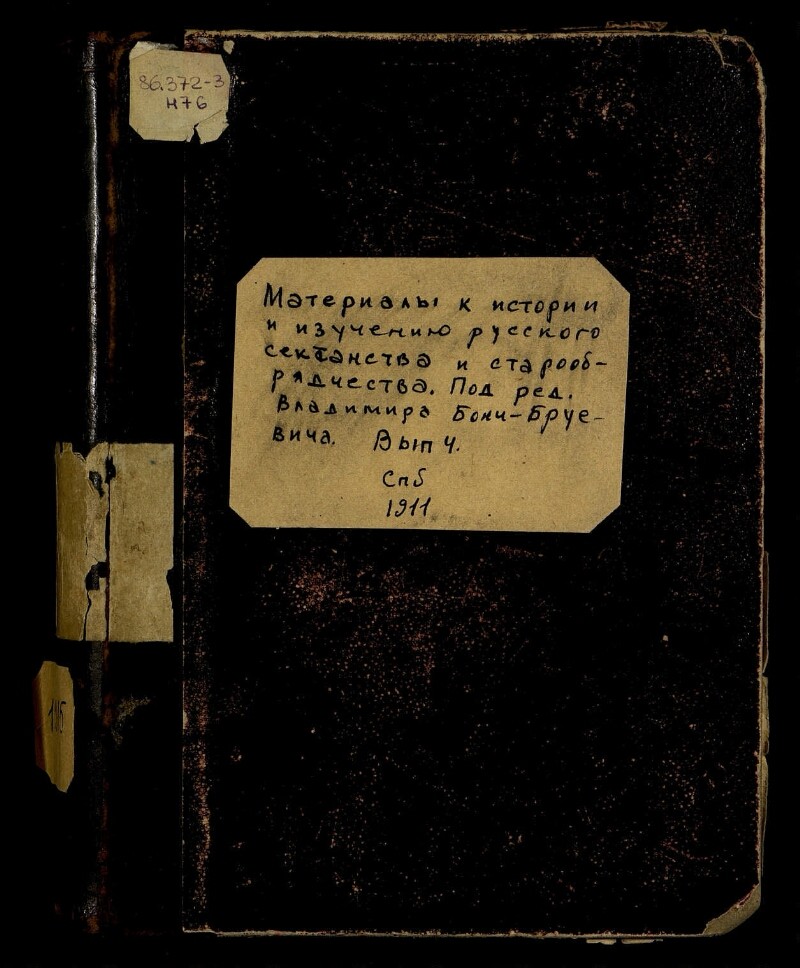 86.372-3
Н76
Материалы к истории
и изучению русского
сектанства и старооб-
рядчества. Под ред.
Владимира Бонч-Бруе-
вича. Вып 4.
Спб
1911
115